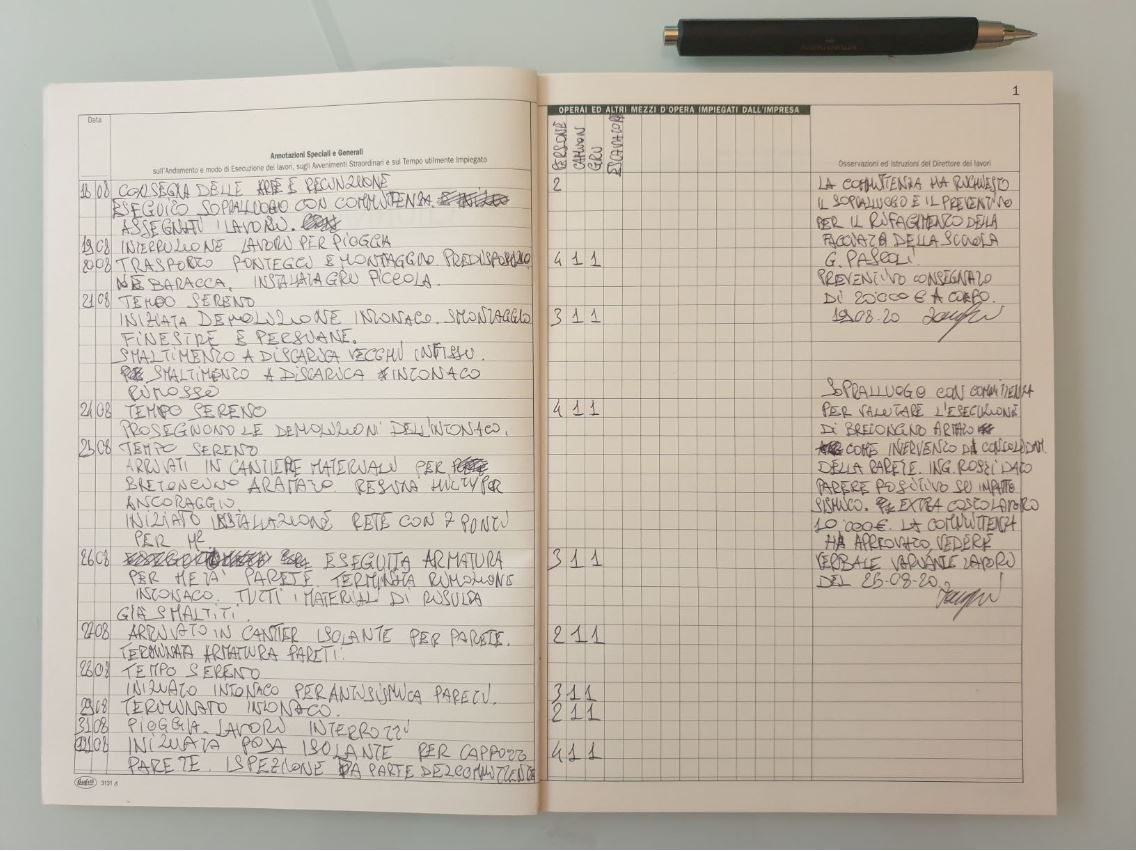 1
Data
Annotazioni Speciali e Generali
sull'Andamento e modo di Esecuzione dei lavori, sugli Avvenimenti Straordinari e sul Tempo utilmente Impiegato
18 08 CONSEGNA DELLE E RECINZIONE
ESEGUITO SOPRALLUOGO CON COMMITTENZA
ASSEGNATI I LAVORI.
19 08 INTERRUZIONE LAVORI PER PIOGGIA
20 08 TRASPORTO PONTEGGI E MONTAGGIO. PREDISPOSIZIO
NE BARACCA, INSTALLATA GRU PICCOLA.
21 08 TEMPO SERENO
INIZIATA DEMOLIZIONE INTONACO. SMONTAGGIO
FINESTRE E PERSIANE.
SMALTIMENTO A DISCARICA VECCHI INFISSI.
SMALTIMENTO A DISCARICA INTONACO
RIMOSSO
24 08 TEMPO SERENO
PROSEGUONO LE DEMOLIZIONI DELL'INTONACO.
25 08 TEMPO SERENO
ARRIVATI IN CANTIERE MATERIALI PER
BRETONCINO ARMATO. RESINA HILTI PER
ANCORAGGIO
INIZIATO INSTALLAZIONE RETE CON 7 PONTI
PER M2
26 08 ESEGUITA ARMATURA
PER META' PARETE. TERMINATA RIMOZIONE
INTONACO. TUTTI I MATERIALI DI RISULTA
GIÀ SMALTITI.
27 08 ARRIVATO IN CANTIER ISOLANTE PER PARETE.
TERMINATA ARMATURA PARETI.
28 08 TEMPO SERENO
INIZIATO INTONACO PER ANTISISMICA PARETI.
29 08 TERMINATO INTONACO.
31 08 PIOGGIA. LAVORI INTERROTTI
INIZIATA POSA ISOLANTE PER CAPPOTTO
PARETE. ISPEZIONE DA PARTE DEL COMMITTENTE
Buffetti 3131 A
OPERAI ED ALTRI MEZZI D'OPERA IMPIEGATI DALL'IMPRESA
PERSONE
CAMION
GRU
ESCAVATORE
2
4 1 1
3 1 1
4 1 1
3 1 1
2 1 1
3 1 1
2 1 1
4 1 1
Osservazioni ed Istruzioni del Direttore dei lavori
LA COMMITTENZA HA RICHIESTO
IL SOPRALLUOGO E IL PREVENTIVO
PER IL RIFACIMENTO DELLA
FACCIATA DELLA SCUOLA
G. PASCOLI
PREVENTIVO CONSEGNATO
DI 20'000 € A CORPO.
08-20
SOPRALLUOGO CON COMMITTENZA
PER VALUTARE L'ESECUZIONE
DI BRETONCINO ARMATO
COME INTERVENTO DI CONSOLIDAM.
DELLA PARETE. ING. ROSSI DATO
PARERE POSITIVO SU IMPATTO
SISMICO. EXTRA COSTO LAVORO
10'000€. LA COMMITTENZA
HA APPROVATO, VEDERE
VERBALE VARIANTE LAVORO
DEL 25-08-20.